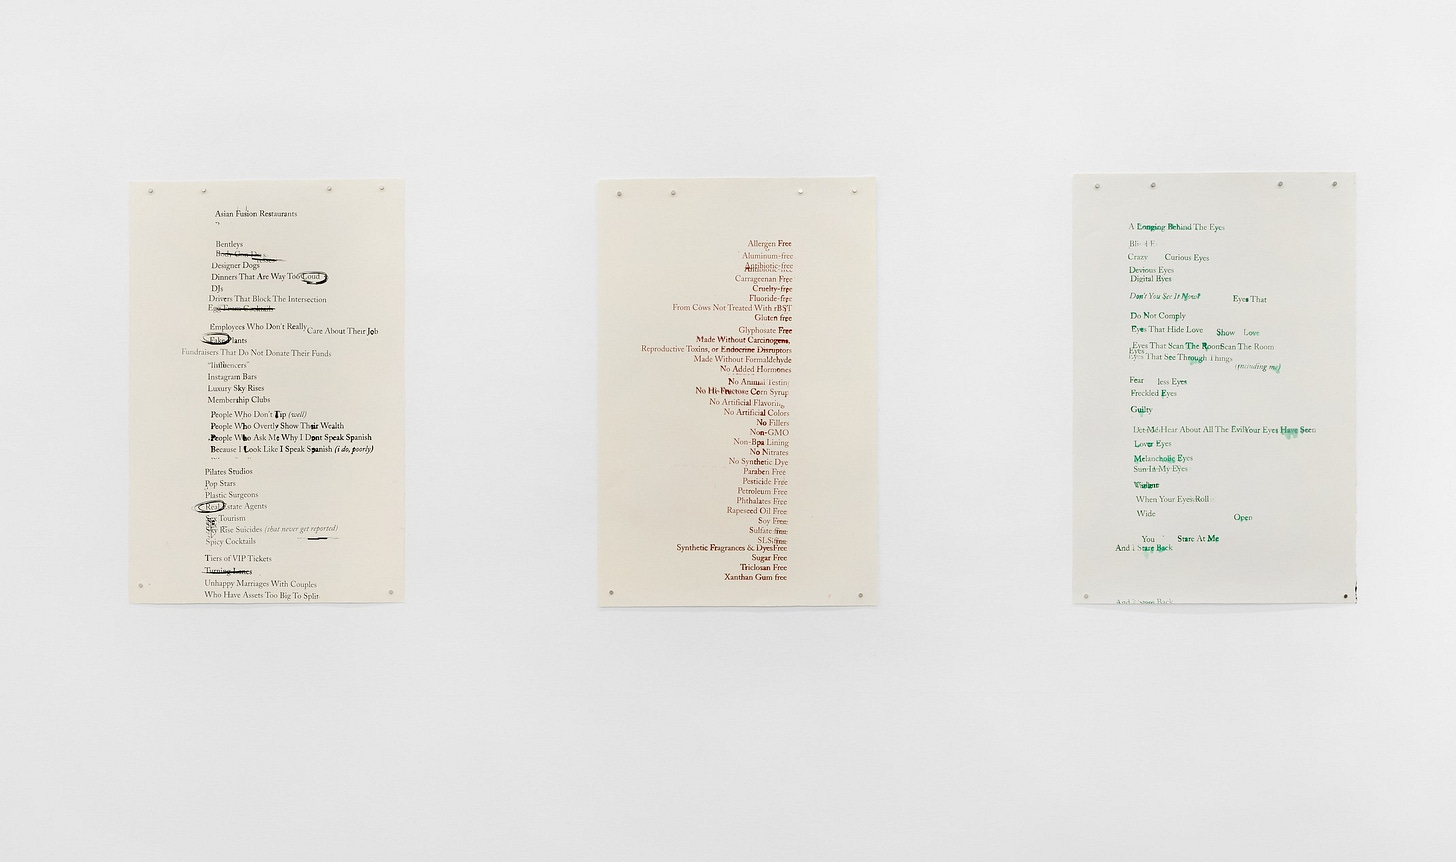 Asian Fusion Restaurants
Bentleys
Designer Dogs
Dinners That Are Way Too Loud
DJs
Drivers That Block The Intersection
Egg From Cocktails
Employees Who Don't Really Care About Their Job
Fake Plants
Fundraisers That Do Not Donate Their Funds
"Influencers"
Instagram Bars
Luxury Sky Rises
Membership Clubs
People Who Don't Tip (well)
People Who Overtly Show Their Wealth
People Who Ask Me Why I Dont Speak Spanish
Because I Look Like I Speak Spanish (i do, poorly)
Pilates Studios
Pop Stars
Plastic Surgeons
Real Estate Agents
Sex Tourism
Sky Rise Suicides (that never get reported)
Spicy Cocktails
Tiers of VIP Tickets
Turning Lanes
Unhappy Marriages With Couples
Who Have Assets Too Big To Split
Allergen Free
Aluminum-free
Antibiotic-free
Antibiotic-free
Carrageenan Free
Cruelty-free
Fluoride-free
From Cows Not Treated With rBST
Gluten free
Glyphosate Free
Made Without Carcinogens,
Reproductive Toxins, or Endocrine Disruptors
Made Without Formaldehyde
No Added Hormones
No Animal Testing
No Hi-Fructose Corn Syrup
No Artificial Flavoring
No Artificial Colors
No Fillers
Non-GMO
Non-Bpa Lining
No Nitrates
No Synthetic Dye
Paraben Free
Pesticide Free
Petroleum Free
Phthalates Free
Rapeseed Oil Free
Soy Free
Sulfate free
SLS free
Synthetic Fragrances & Dyes Free
Sugar Free
Triclosan Free
Xanthan Gum free
A Longing Behind The Eyes
Crazy Curious Eyes
Devious Eyes
Digital Eyes
Don't You See It Now? Eyes That
Do Not Comply
Eyes That Hide Love Show Love
Eyes That Scan The Room Scan The Room
Eyes
Eyes That See Through Things
(including me)
Fear less Eyes
Freckled Eyes
Guilty
Let Me Hear About All The Evil Your Eyes Have Seen
Lover Eyes
Melancholic Eyes
Sun In My Eyes
When Your Eyes Roll
Wide Open
You Stare At Me
And I Stare Back
And I Stare Back